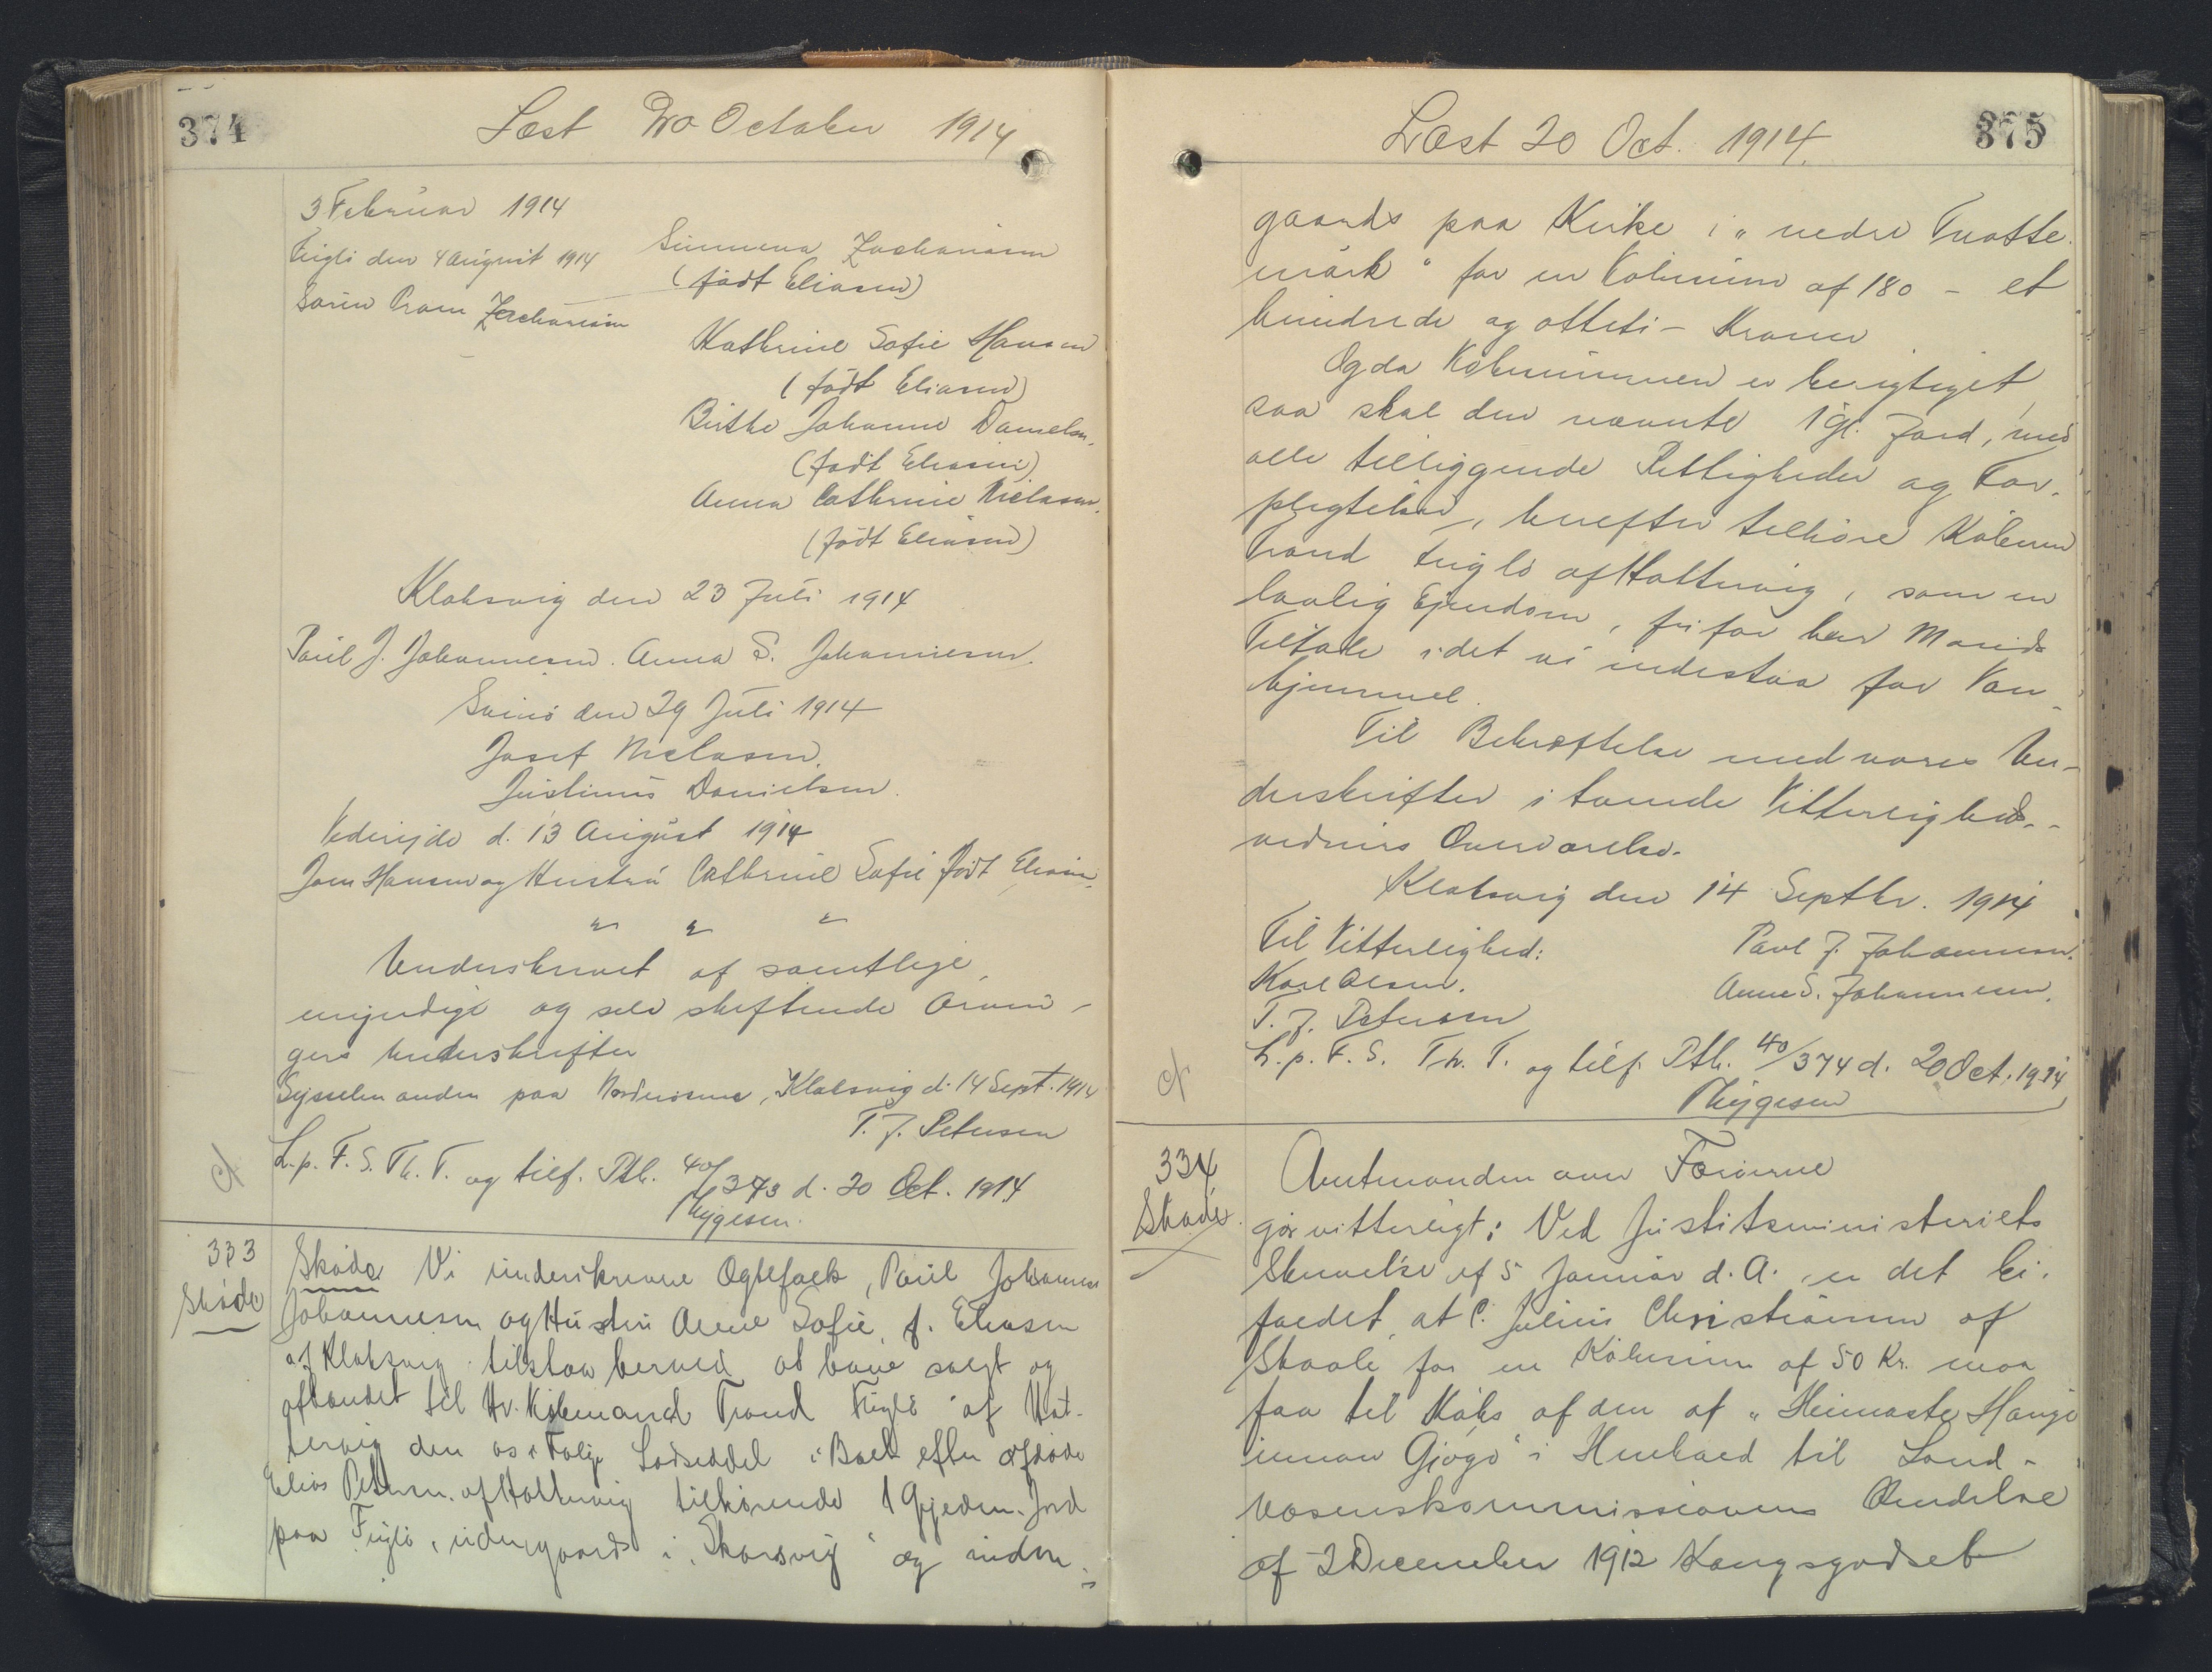 374
Læst 20 October 1914
3 Februar 1914
Fuglö den 4 August 1914
Sören Pram Zachariasen
Simmena Zachariasen
(födt Eliasen)
Kathrine Sofie Hansen
(födt Eliasen)
Birthe Johanne Danielsen.
(födt Eliasen)
Anna Cathrine Nielasen.
(födt Eliasen)
Klaksvig den 23 Juli 1914
Poul J. Johannesen. Anna S. Johannesen.
Svinö den 29 Juli 1914
Josef Nielasen.
Justinus Danielsen.
Viderejde d. 13 August 1914
Joen Hansen og Hustru Cathrine Sofie födt Eliasen.
" " "
Underskrevet af samtlige,
myndige og selv skiftende Arvin-
gers Underskrifter
Sysselmanden paa Norderöerne, Klaksvig d. 14 Sept. 1914
T. J. Petersen
L. p. F. S. Th. T. og tilf. Pth. 40/373 d. 20 Oct. 1914
Thygesen.
333
Sköde
Sköde Vi underskrevne Ægtefolk, Poul Johannes
Johannesen og Hustru Anne Sofie, f. Eliasen
af Klaksvig tilstaa herved at have solgt og
afhændet til Hr. Köbmand Trond Fuglö af Hat-
tervig den os i Følge Lodseddel i Boet efter afdöde
Elias Petersen af Hattervig tilhörende 1 Gyjeden. Jord
paa Fuglö, uden gaards i "Skarsvig" og inden-
375
Læst 20 Oct. 1914.
gaards paa Kirke i "nedre Tvatte-
mörk" for en Köbesum af 180 - et
hundrede og otteti - Kroner
Og da Köbesummen er berigtiget,
saa skal den nævnte 1 gl. Jord, med
alle tilliggende Rettigheder og For-
pligtelser, herefter tilhöre Köberen
Trond Fuglö af Hattervig, som en
lovlig Ejendom, fri for hver Mands
Tiltale idet vi indestaa for Van-
hjemmel.
Til Bekræftelse med vores Un-
derskrifter i tvende Vitterligheds-
vidners Overværelse.
Klaksvig den 14 Septbr. 1914
Til Vitterlighed:
Karl Olsen.
T. J. Petersen
Poul J. Johannesen.
Anne S. Johannesen.
L. p. F. S. Th. T. og tilf. Pth. 40/374 d. 20 Oct. 1914
Thygesen
334
Sköde.
Amtmanden over Færöerne
gör vitterligt: Ved Justitsministeriets
Skrivelse af 5 Januar d. A. er det bi-
faldet, at C. Julius Christiansen af
Skaale for en Köbesum af 50 Kr. maa
faa til Köbs af den af "Heimaste Hauge
innan Gjógv" i Henhold til Land-
væsenskommissionens Kendelse
af 2 December 1912 Kongsgodset